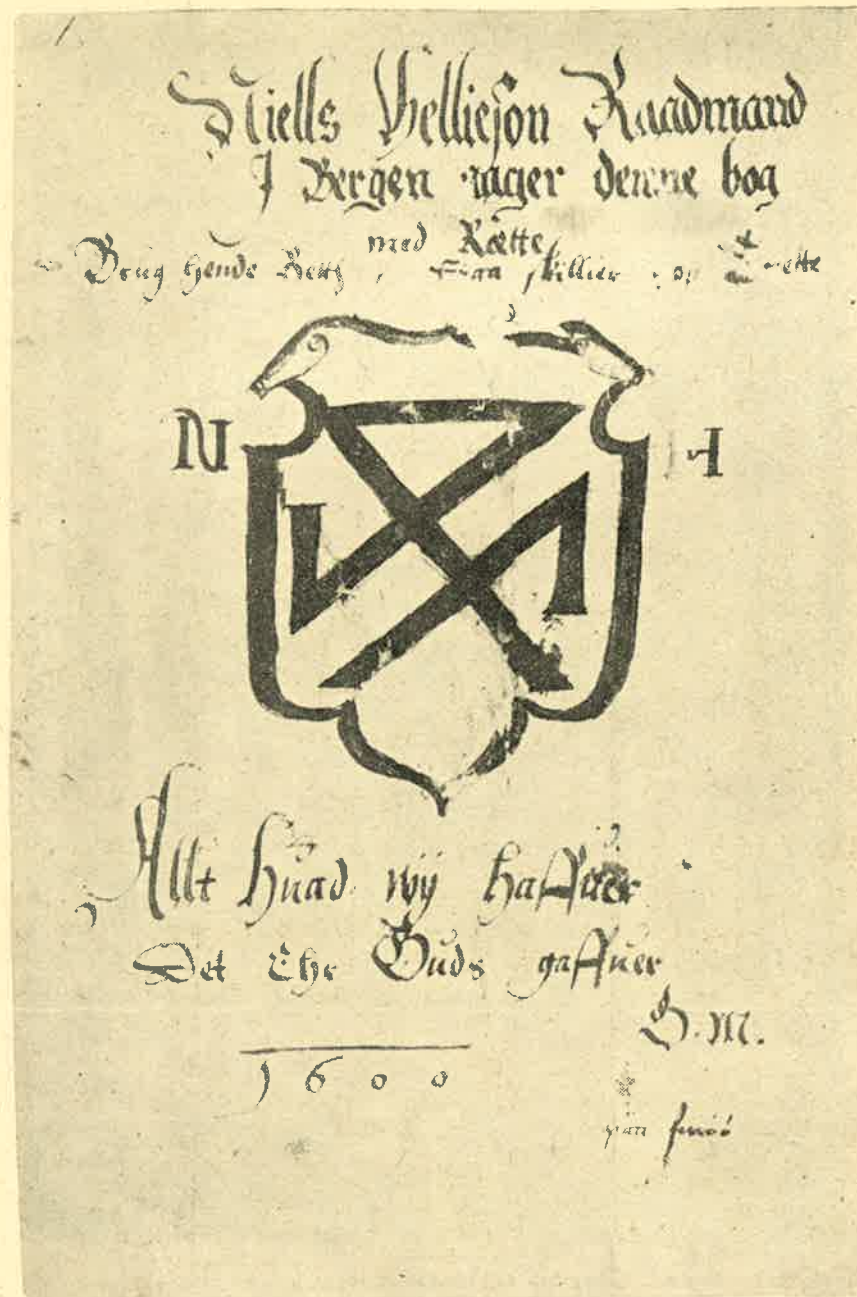 Niells Helliesøn Raadmand
I Bergen nager denne bog
med Rætte
Brug hende Rett
N H
Allt Huad wÿ haffuer
Det Ehr Guds gaffuer
G. M.
1600